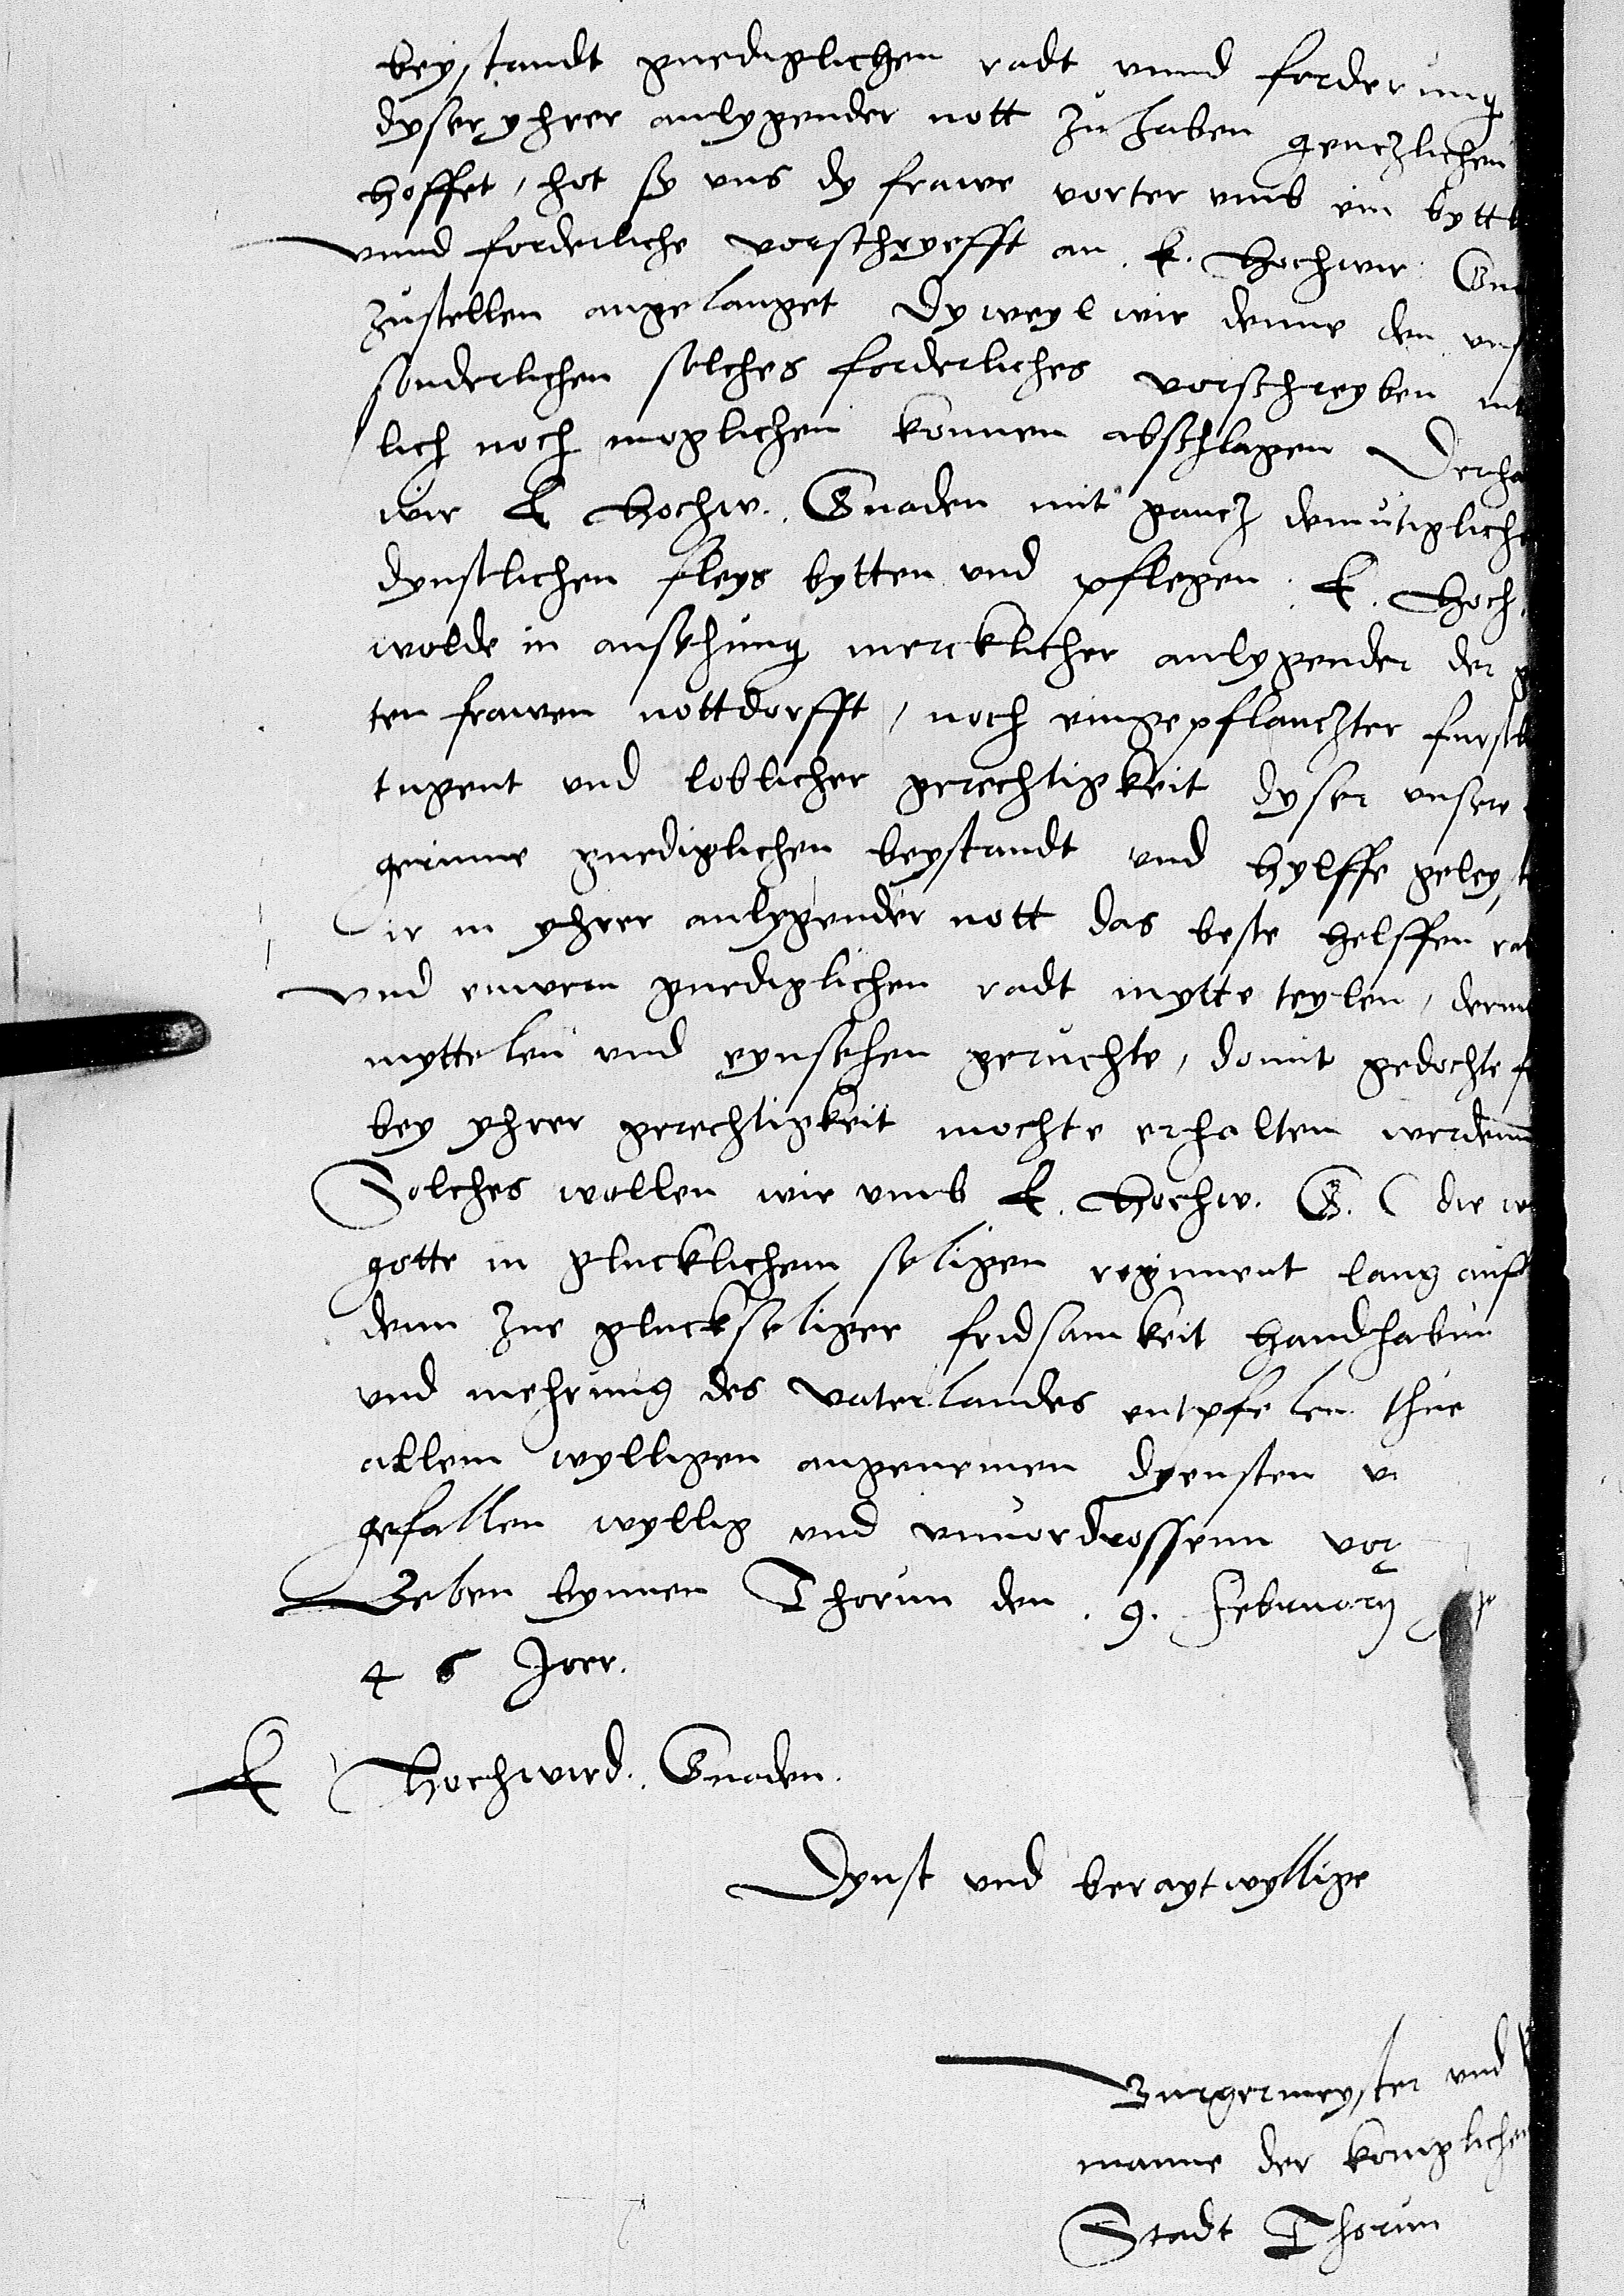 beystandt gnediglichen radt vnnd forderung
dyser yhrer anlygender nott zu haben genczlichen
hoffet, hot sy vns dy frawe vorter vmb ein bytt
vnnd forderliche vorschryefft an E. Hochwir. Gna
zustellen angelanget Dyweyl wir denne den vns
sonderlichen solches forderliches vorschreyben
lich noch moglichen konnen abschlagen Derha
wir E Hochw. Gnaden mit gancz demutigliche
dynstlichen fleys bytten vnd pflegen. E. Hoch.
wolde in ansehung mercklicher anlygender der g
ten frawen nottdorfft, noch eingepflanczter furstl
tugent vnd loblicher gerechtigkeit dyser vnsere
gerinne gnediglichen beystandt vnd hylffe geleyst
ir in yhrer anlygender nott das beste helffen rat
vnd euwren gnediglichen radt mytte teylen, derm
myttelen vnd eynsehen geruchte, domit gedochte f
bey yhrer gerechtigkeit mochte erhalten werdenn
Solches wollen wir vmb E. Hochw. G. (die w
gotte in glucklichem seligen regiment lang auf
denn zur gluckseliger fridsamkeit handhabun
vnd mehrung des vaterlandes entpfelen thue
allem wylligen angenemen dyensten v
gefallen wyllig vnd vnuordrossenn vor
Geben bynnen Thorun den .9. februarij
46 Jor.
E Hochwird. Gnaden.
Dynst vnd beraytwyllige
Burgermeyster vnd
manne der koniglichen
Stadt Thorun